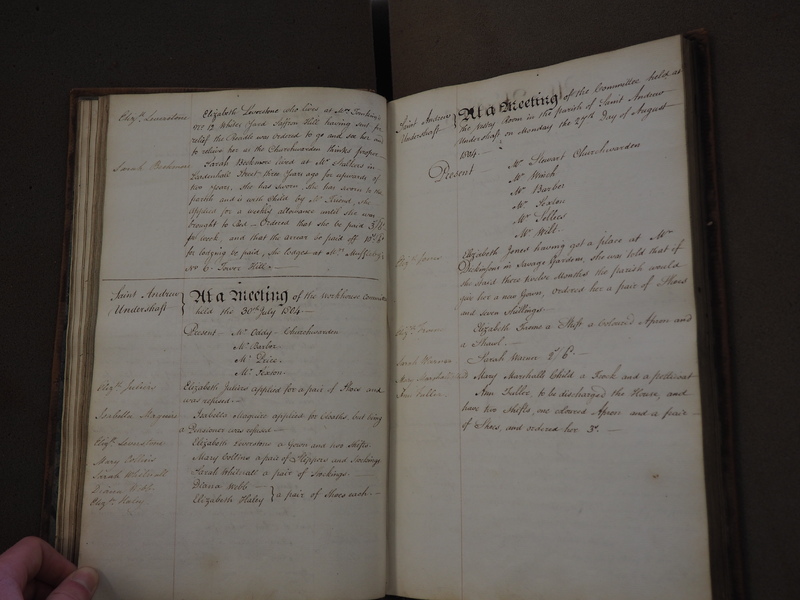 Eliz.th Leverstone
Elizabeth Leverstone who lives at Mrs
No 12 White's Yard Saffron Hill having sent for
relief the Beadle was ordered to go and see her and
to relieve her as the Churchwarden thinks proper
Sarah Beckman
Sarah Beckman lived at Mr in
Leadenhall Street three Years ago for upwards of
two Years, she has sworn to the
parish and is with Child by Mr Friend, she
applies for a weekly allowance until she was
brought to Bed — Ordered that she be paid 3/6
per week, and that the arrear be paid off
for lodging to paid, she lodges at Mrs
No 6 Tower Hill. —
Saint Andrew
Undershaft
At a Meeting of the workhouse Committee
held the 30th July 1804 —
Present Mr Oddy Churchwarden
Mr Barber
Mr Price
Mr Saxton
Eliz.th Juliers
Elizabeth Juliers applied for a pair of Shoes and
was refused —
Isabella Maguire
Isabella Maguire applied for Cloaths, but being
a Pensioner was refused —
Eliz.th Leverstone
Elizabeth Leverstone a Gown and two Shifts
Mary Collins
Mary Collins a pair of Slippers and Stockings
Sarah
Sarah a pair of Stockings
Diana Webb
Diana Webb
Eliz.th Haley
Elizabeth Haley a pair of Shoes each —
Saint Andrew
Undershaft
At a Meeting of the Committee, held at
the Vestry Room in the parish of Saint Andrew
Undershaft on Monday the 27th Day of August
1804 —
Present
Mr Stewart Churchwarden
Mr
Mr Barber
Mr Saxton
Mr
Mr Wilt
Eliz.th Jones
Elizabeth Jones having got a place at Mr
Dickinson's in Savage Gardens, she was told that if
she staid there twelve Months the parish would
give her a new Gown, ordered her a pair of Shoes
and seven Shillings
Eliz.th Brown
Elizabeth Brown a Shift a Coloured Apron and
a Shawl. —
Sarah Warner
Sarah Warner 2/6. —
Mary Marshall
Mary Marshall Child a Frock and a petticoat
Ann Fuller
Ann Fuller to be discharged the House, and
have two Shifts, one colored Apron and a pair
of Shoes, and ordered her 3s. —